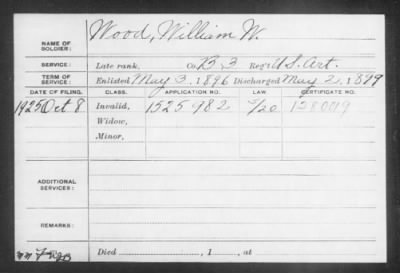 NAME OF SOLDIER: Wood, William W.
SERVICE: Late rank, Co. B, 3 Reg't U.S. Art.
TERM OF SERVICE: Enlisted May 3, 1896 Discharged May 2, 1899
DATE OF FILING. CLASS. APPLICATION NO. LAW. CERTIFICATE NO.
1925 Oct 8 Invalid, 1525982
Widow,
Minor,
ADDITIONAL SERVICES:
REMARKS:
Died , 1 , at